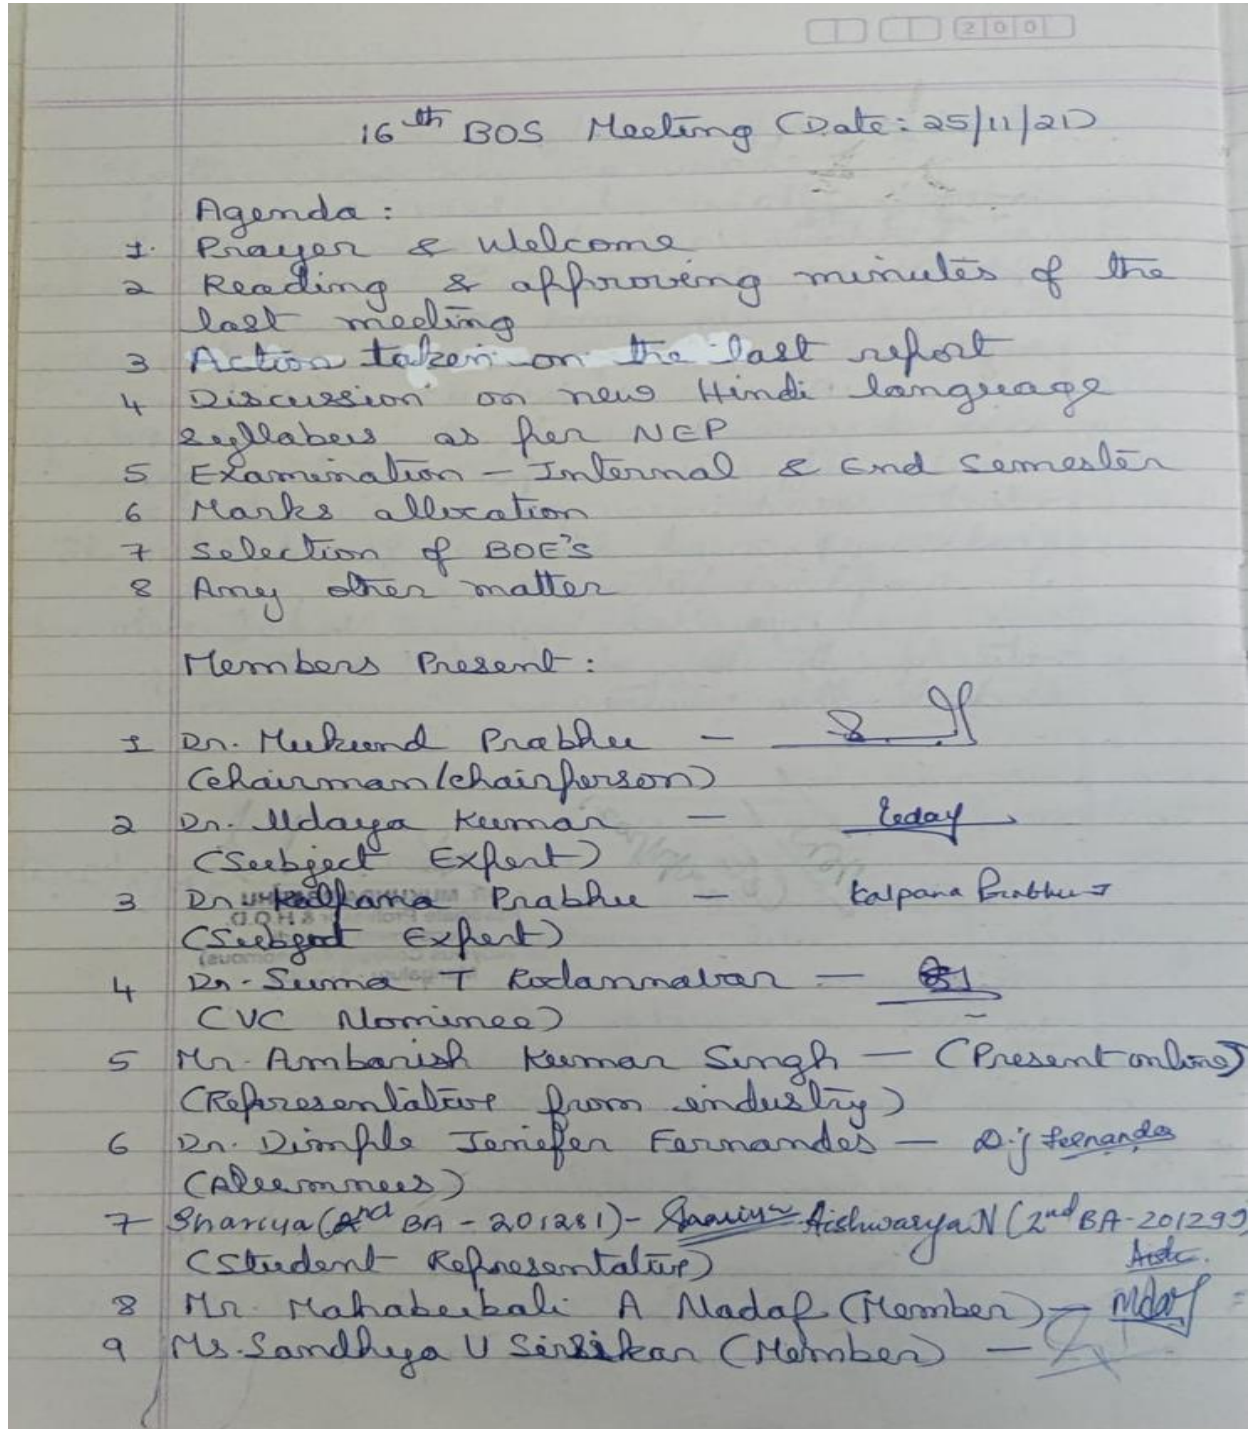 200
16th BOS Meeting (Date: 25/11/21)
Agenda:
1. Prayer & Welcome
2 Reading & approving minutes of the
last meeting
3 Action taken on the last report
4 Discussion on new Hindi language
Syllabus as per NEP
5 Examination - Internal & End Semester
6 Marks allocation
7 Selection of BOE's
8 Any other matter
Members Present:
1 Dr. Mukund Prabhu -
(Chairman/chairperson)
2 Dr. Udaya Kumar - Uday
(Subject Expert)
3 Dr. Kalpana Prabhu - Kalpana Prabhu
(Subject Expert)
4 Dr. Suma T Rodannavar -
(VC Nominee)
5 Mr. Ambarish Kumar Singh - (Present online)
(Representative from industry)
6 Dr. Dimple Jenifer Fernandes - D.j Fernandes
(Alumnus)
7 Shariya (2nd BA - 201281) - Aishwarya N (2nd BA - 201299)
(Student Representative)
8 Mr. Mahabubali A Nadaf (Member) -
9 Ms. Sandhya U Sirsikar (Member) -